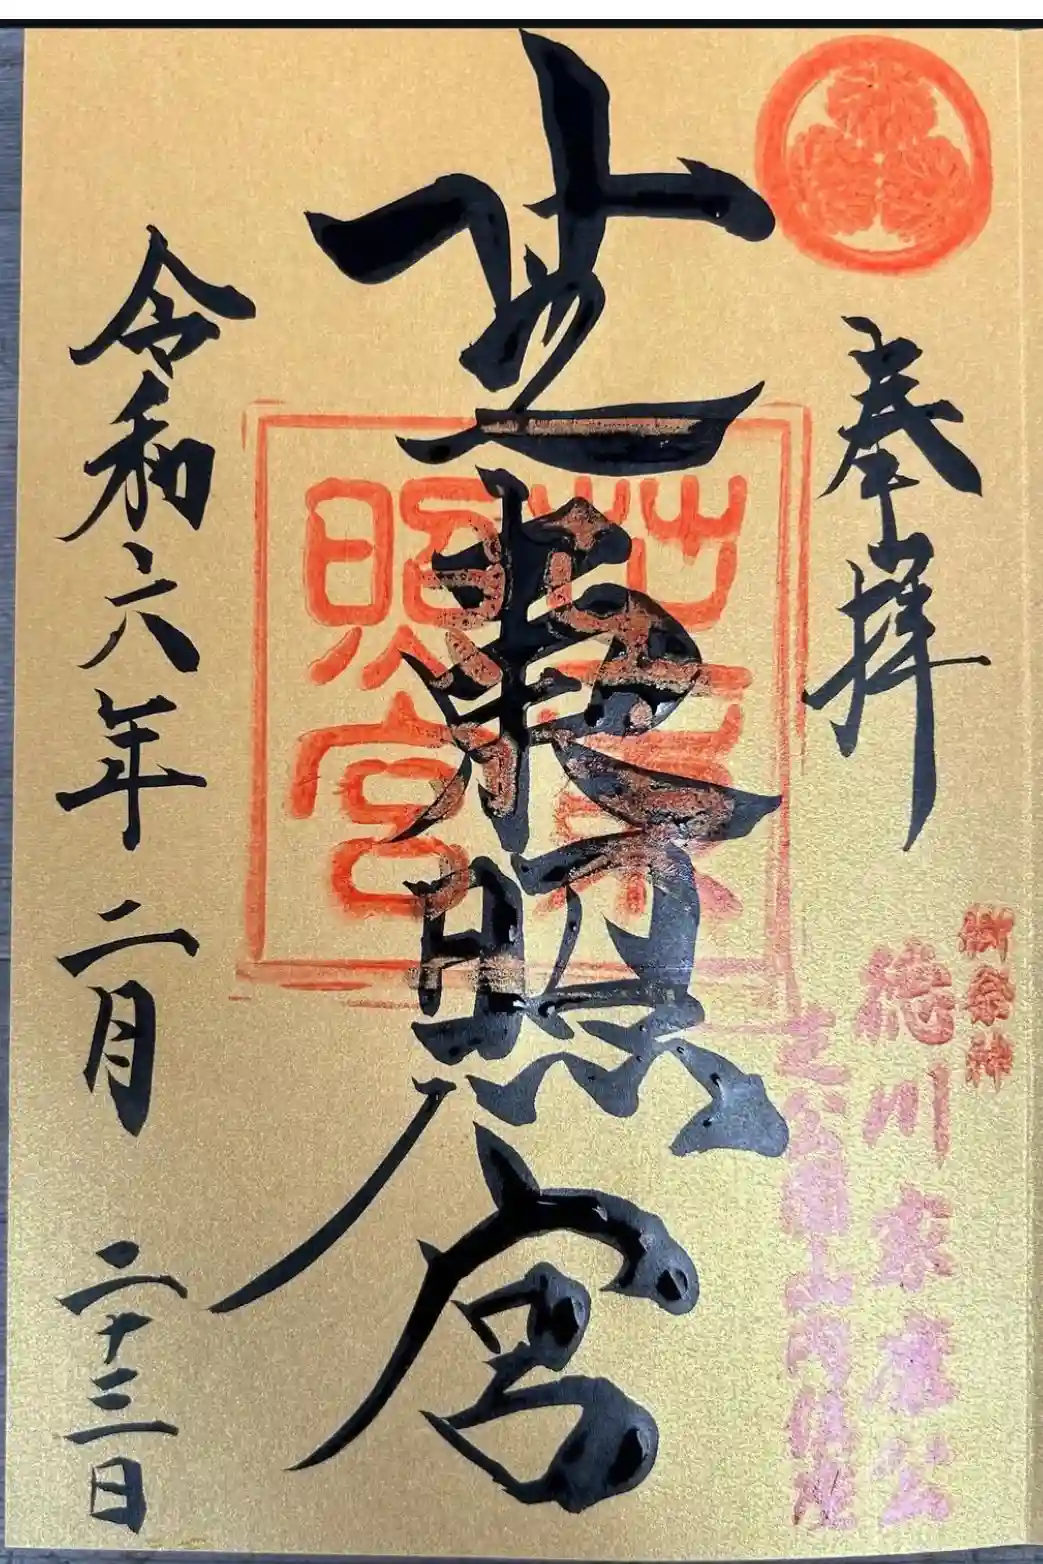 奉拝
御祭神
徳川家康公
芝公園山内鎮座
芝東照宮
芝東照宮
令和六年二月二十三日